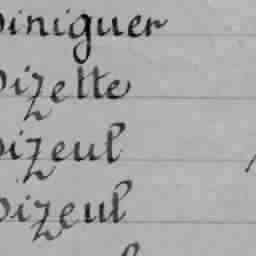 Piniguer
Pizette
Pizeul
Pizeul